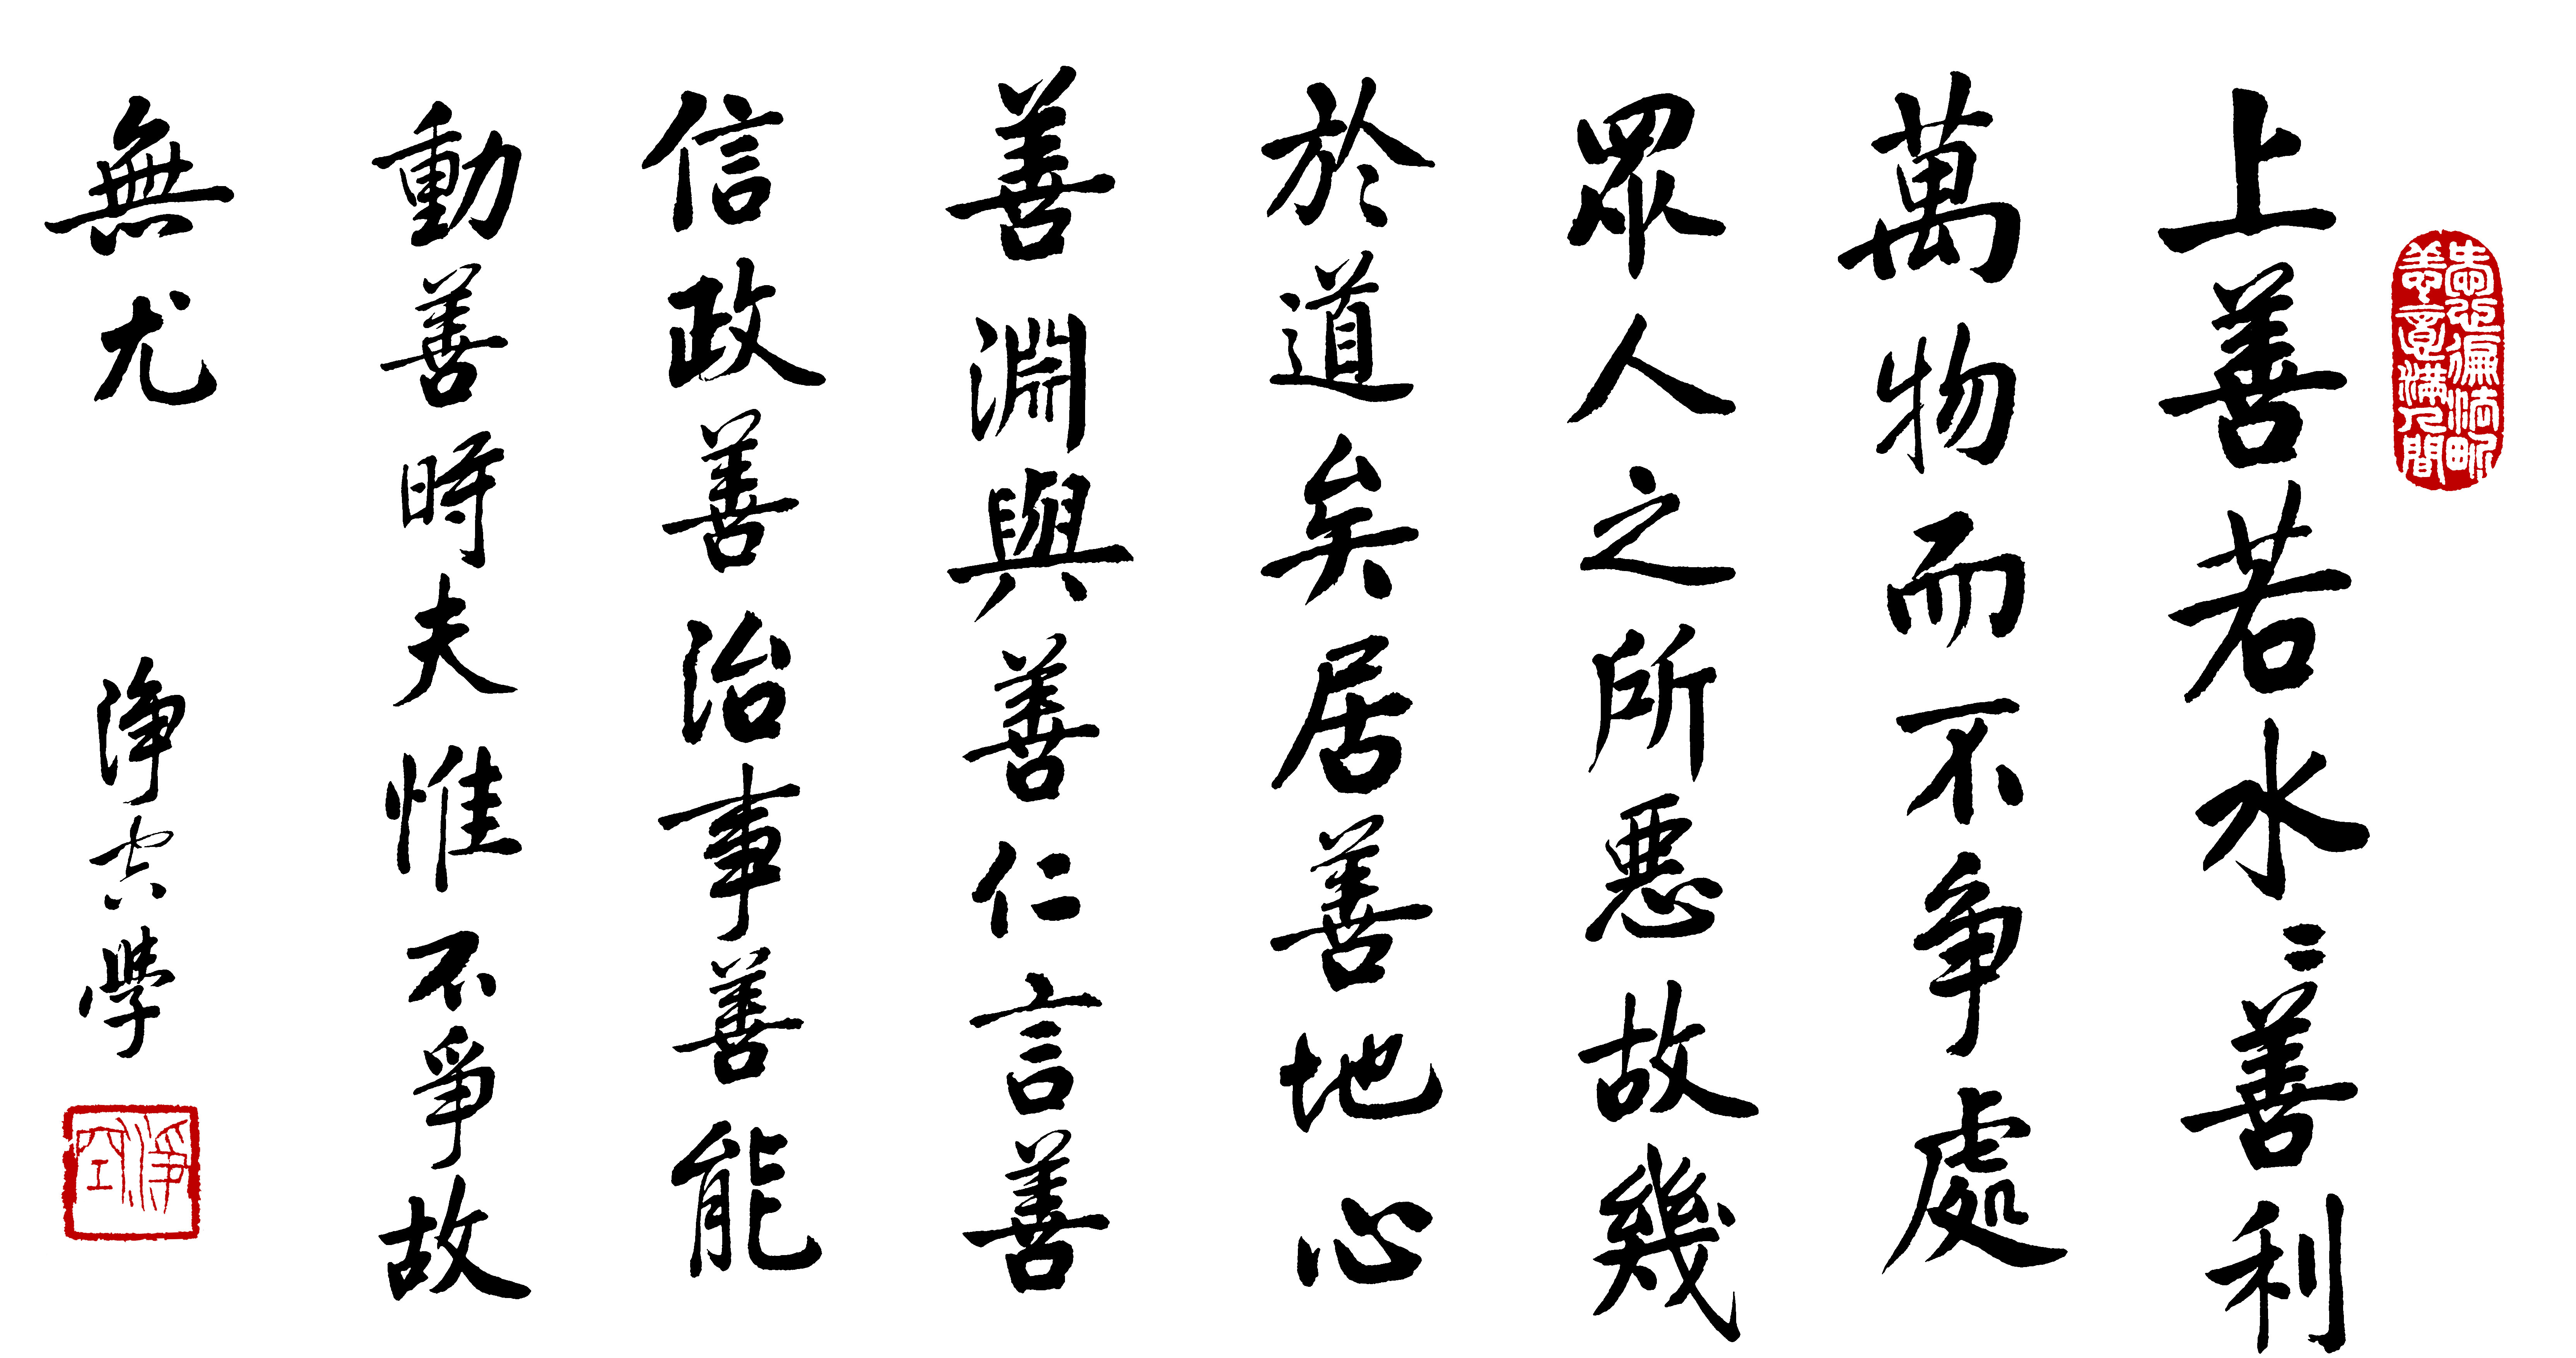 愛心徧法界
善意滿人間
上善若水〻善利
萬物而不争處
眾人之所悪故幾
於道矣居善地心
善淵與善仁言善
信政善治事善能
動善時夫惟不爭故
無尤
淨空學
淨空